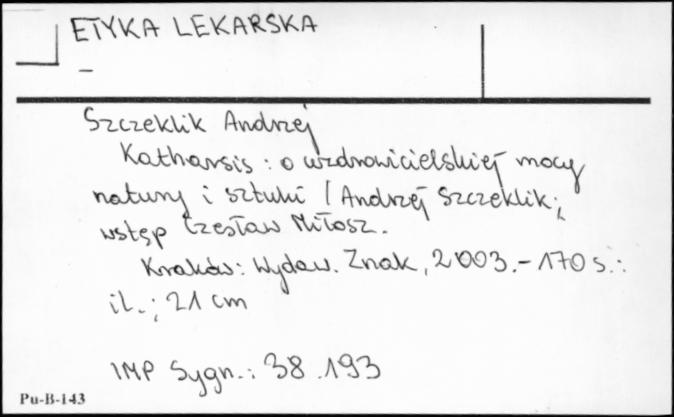 ETYKA LEKARSKA
–
Szczeklik Andrzej
Katharsis : o uzdrowicielskiej mocy
natury i sztuki / Andrzej Szczeklik ;
wstęp Czesław Miłosz.
Kraków : Wydaw. Znak, 2003. – 170 s. :
il. ; 21 cm
IMP Sygn. : 38.193
Pu-B-143